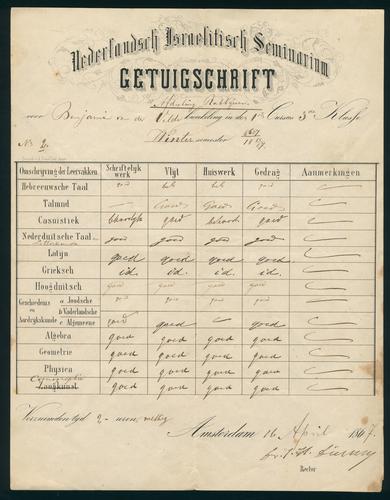 Nederlandsch Israelitisch Seminarium
GETUIGSCHRIFT
Afdeeling Rabbijnen
voor Benjamin van der Velde leerling in de 1e Cursus 3de Klasse
No. 2. Winter semester 1867
Omschrijving der Leervakken. Schriftelijk werk Vlijt Huiswerk Gedrag Aanmerkingen
Hebreeuwsche Taal goed goed
Talmud — Goed Goed Goed
Casuistiek goed goed
Nederduitsche Taal en Letterkunde goed goed goed goed
Latijn goed goed goed goed
Grieksch id. id. id. id.
Hoogduitsch goed goed goed goed
Geschiedenis en Aardrijkskunde
a Joodsche goed goed goed goed
b Vaderlandsche
c Algemeene goed goed goed
Algebra goed goed goed goed
Geometrie goed goed goed goed
Physica goed goed goed goed
Cosmographie
Zangkunst goed goed goed goed
Verzuimden tijd 2 uren, wettig
Amsterdam 16 April 1867.
Rector